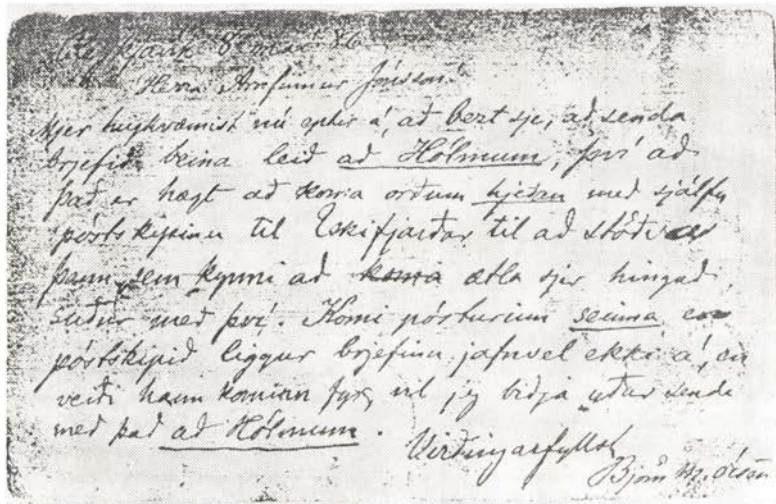 8 mars 86
Herra Arnfinnur Jónsson!
Mjer hughvæmist nú eptir á, að bezt sje, að senda
brjefið beina leið að Hólmum, því að
það er hægt að koma orðum hjeðan með sjálfu
póstskipinu til Eskifjarðar til að stöðva
þann, sem kynni að koma ætla sjer hingað
suður með því. Komi pósturinn seinna en
póstskipið liggur brjefinu jafnvel ekki á, en
verði hann kominn fyr, vil jeg biðja yður senda
með það að Hólmum.
Virðingarfyllst
Björn M. Ólsen